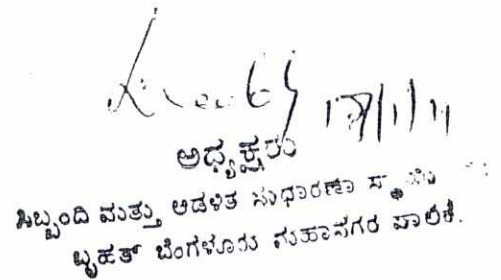 17/1/11
ಅಧ್ಯಕ್ಷರು
ಸಿಬ್ಬಂದಿ ಮತ್ತು ಆಡಳಿತ ಸುಧಾರಣಾ ಸ್ಥಾಯಿ
ಬೃಹತ್ ಬೆಂಗಳೂರು ಮಹಾನಗರ ಪಾಲಿಕೆ.